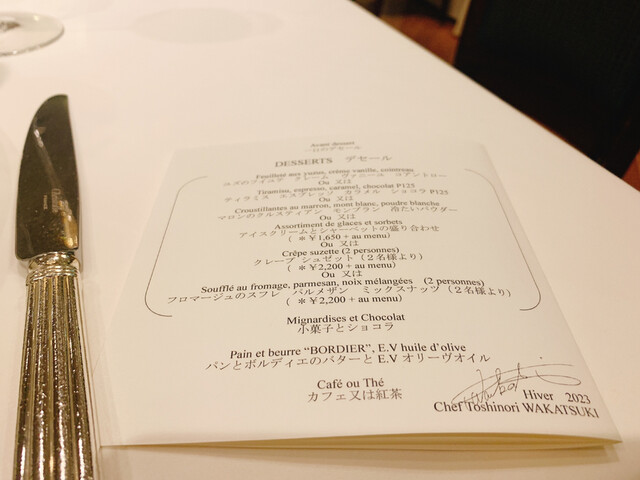 Avant dessert
一口のデセール
DESSERTS デセール
Feuilleté aux yuzus, crème vanille, cointreau
ユズのフイユテ クレーム ヴァニーユ コアントロー
Ou 又は
Tiramisu, espresso, caramel, chocolat P125
ティラミス エスプレッソ カラメル ショコラ P125
Ou 又は
Croustillantes au marron, mont blanc, poudre blanche
マロンのクルスティアン モンブラン 冷たいパウダー
Ou 又は
Assortiment de glaces et sorbets
アイスクリームとシャーベットの盛り合わせ
( ＊¥1,650 + au menu)
Ou 又は
Crêpe suzette (2 personnes)
クレープ シュゼット (２名様より)
( ＊¥2,200 + au menu)
Ou 又は
Soufflé au fromage, parmesan, noix mélangées (2 personnes)
フロマージュのスフレ パルメザン ミックスナッツ (２名様より)
( ＊¥2,200 + au menu)
Mignardises et Chocolat
小菓子とショコラ
Pain et beurre “BORDIER”, E.V huile d’olive
パンとボルディエのバターと E.V オリーヴオイル
Café ou Thé
カフェ又は紅茶
Hiver 2023
Chef Toshinori WAKATSUKI